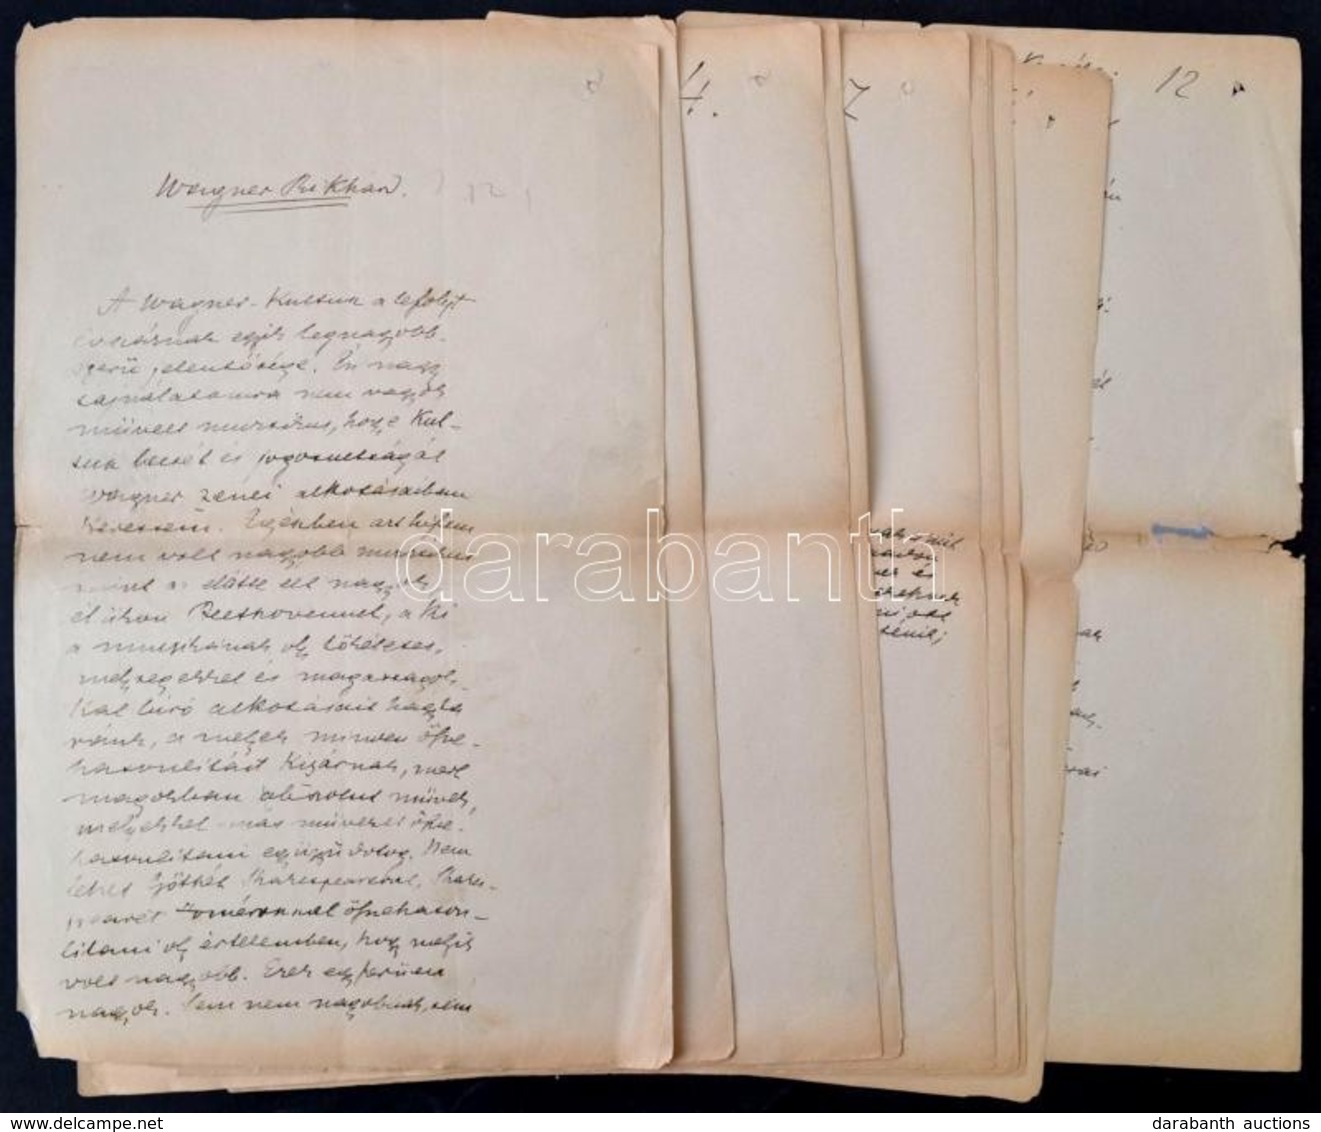 4.
7
12
Wagner Rikhard.
A Wagner-Kultusz a lefolyt
évszáznak egyik legnagyobb-
szerü jelentősége. Én nagy
sajnálatomra nem vagyok
müvelt muzsikus, hogy e Kul-
tusz becsét és jogosultságát
Wagner zenei alkotásaiban
keressem. Egészben azt hiszem
nem volt nagyobb muzsikus
mint az előtte élt nagyok
élükön Beethovennel, a ki
a muzsikának oly tökéletes,
mélységekkel és magasságok-
kal biró alkotásait hagyta
ránk, a melyek minden össze-
hasonlitást kizárnak, mert
magokban abszolut müvek,
melyekkel más müveket össze-
hasonlitani együgyü dolog. Nem
lehet Göthét Shakespeareral, Shakes-
pearet Homérosszal összehason-
litani oly értelemben, hogy melyik
volt nagyobb. Ezek egyszerüen
nagyok. Sem nem nagyobbak, sem
darabanth
darabanth.com
darabanth auctions